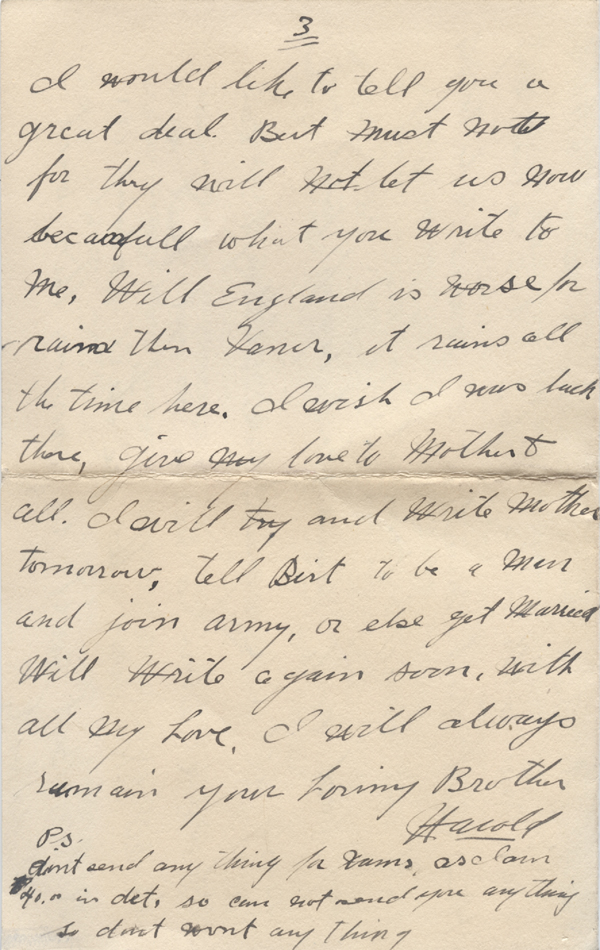 3
I would like to tell you a
great deal. But must not
for they will not let us now
be carfull what you Write to
Me, Will England is worse for
rain then Vancr, it rains all
the time here. I wish I was back
there, give my love to Mother &
all. I will try and Write Mother
tomorrow, tell Birt to be a Man
and join army, or else get Married
Will Write again soon, with
all My Love. I will always
remain your Loving Brother
Harold
P.S.
dont send any thing for Xams, as I am
40.00 in det, so can not send you anything
so dont wont any thing